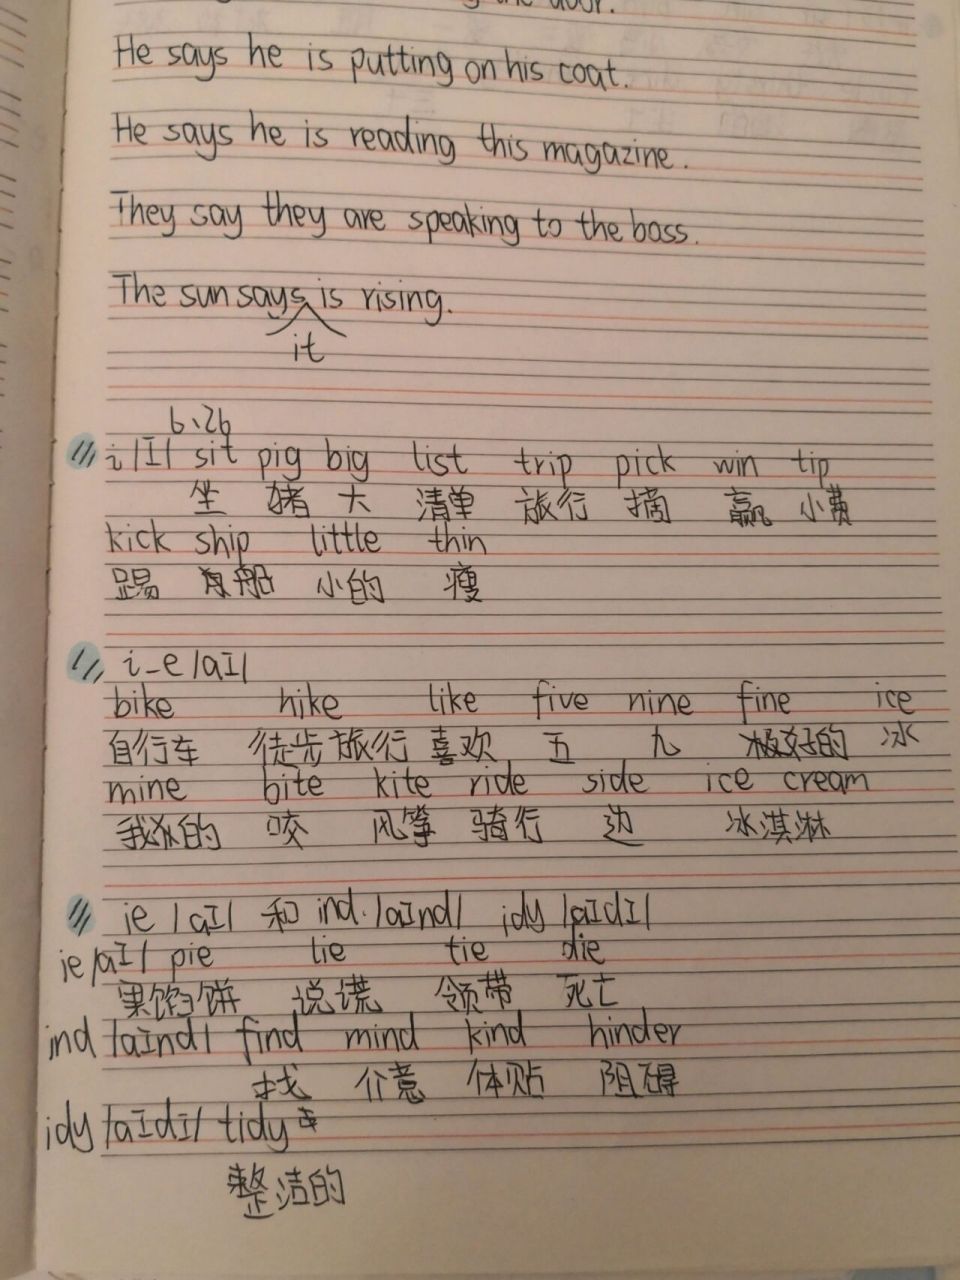 the door.
He says he is putting on his coat.
He says he is reading this magazine.
They say they are speaking to the boss.
The sun says is rising.
it
6、26
i /ɪ/ sit pig big list trip pick win tip
坐 猪 大 清单 旅行 摘 赢 小费
kick ship little thin
踢 船 小的 瘦
i_e /aɪ/
bike hike like five nine fine ice
自行车 徒步旅行 喜欢 五 九 极好的 冰
mine bite kite ride side ice cream
我的 咬 风筝 骑行 边 冰淇淋
ie /aɪ/ 和 ind. /aɪnd/ idy /aɪdɪ/
ie /aɪ/ pie lie tie die
果馅饼 说谎 领带 死亡
ind /aɪnd/ find mind kind hinder
找 介意 体贴 阻碍
idy /aɪdɪ/ tidy
整洁的